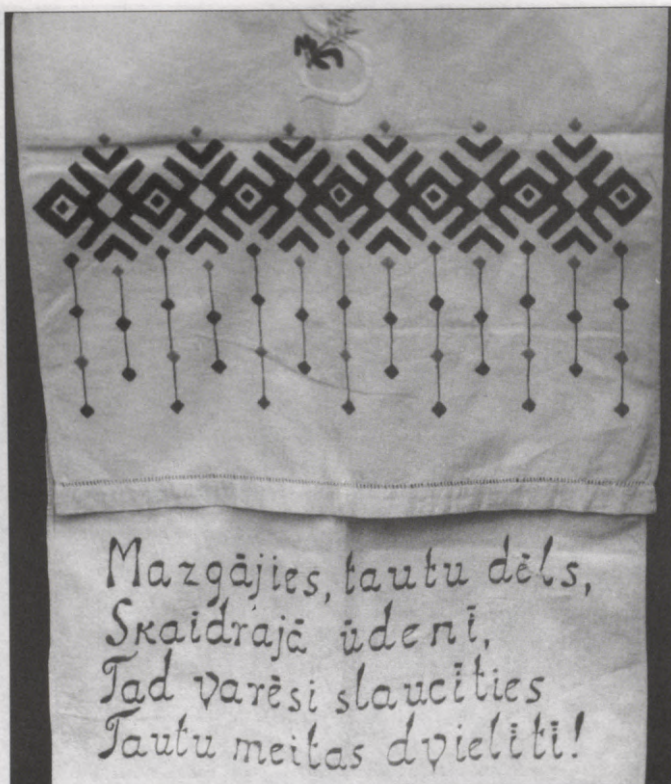 Mazgājies, tautu dēls,
Skaidrajā ūdenī,
Tad varēsi slaucīties
Tautu meitas dvielītī!